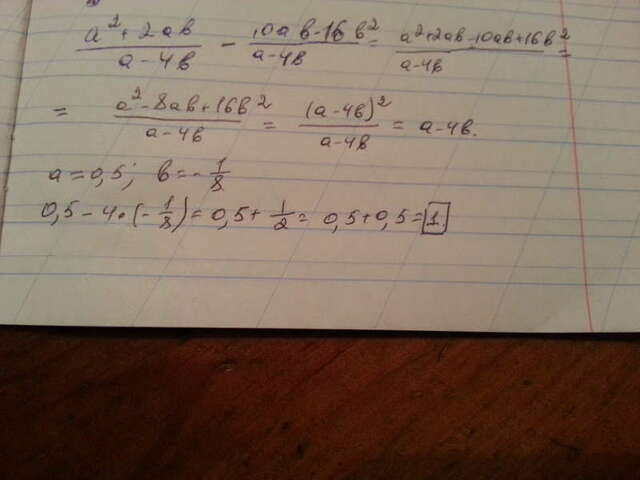 a² + 2ab / a - 4b - 10ab - 16b² / a - 4b = a² + 2ab - 10ab + 16b² / a - 4b =
= a² - 8ab + 16b² / a - 4b = (a - 4b)² / a - 4b = a - 4b.
a = 0,5; b = - 1/8
0,5 - 4 · (- 1/8) = 0,5 + 1/2 = 0,5 + 0,5 = 1.